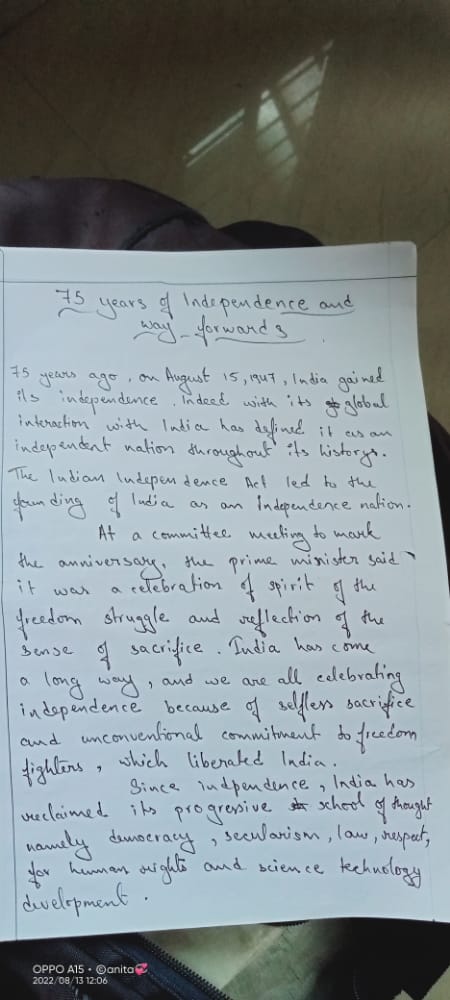 75 years of Independence and
way forwards
75 years ago, on August 15, 1947, India gained
its independence. Indeed with its global
interaction with India has defined it as an
independent nation throughout its historys.
The Indian Indepen dence Act led to the
foun ding of India as an independence nation.
At a committee meeting to mark
the anniversary, the prime minister said
it was a celebration of spirit of the
freedom struggle and reflection of the
sense of sacrifice. India has come
a long way, and we are all celebrating
independence because of selfless sacrifice
and unconventional commitment to freedom
fighters, which liberated India.
Since indpendence, India has
reclaimed its progressive school of thought
namely democracy, secularism, law, respect,
for human rights and science technology
development.
OPPO A15 • ©anita💞
2022/08/13 12:06